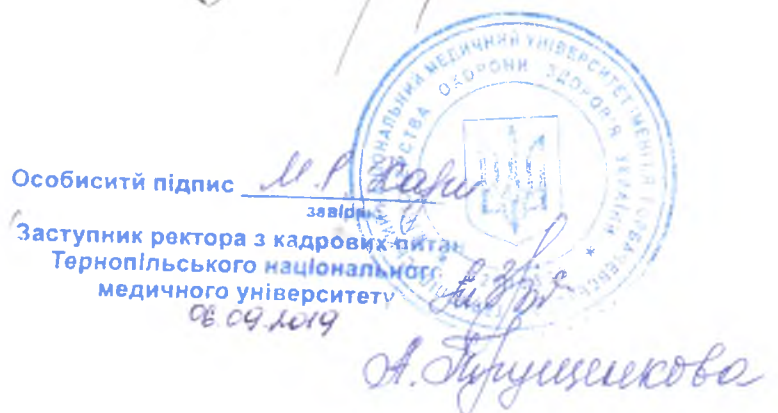 Особиситй підпис М.Р. Хари
завідч
Заступник ректора з кадрових питан
Тернопільського національного
медичного університету
06.09.2019
ОНАЛЬНИЙ МЕДИЧНИЙ УНІВЕРСИТЕТ ІМЕНІ
ОХОРОНИ ЗДОРОВ'Я УКРАЇНИ